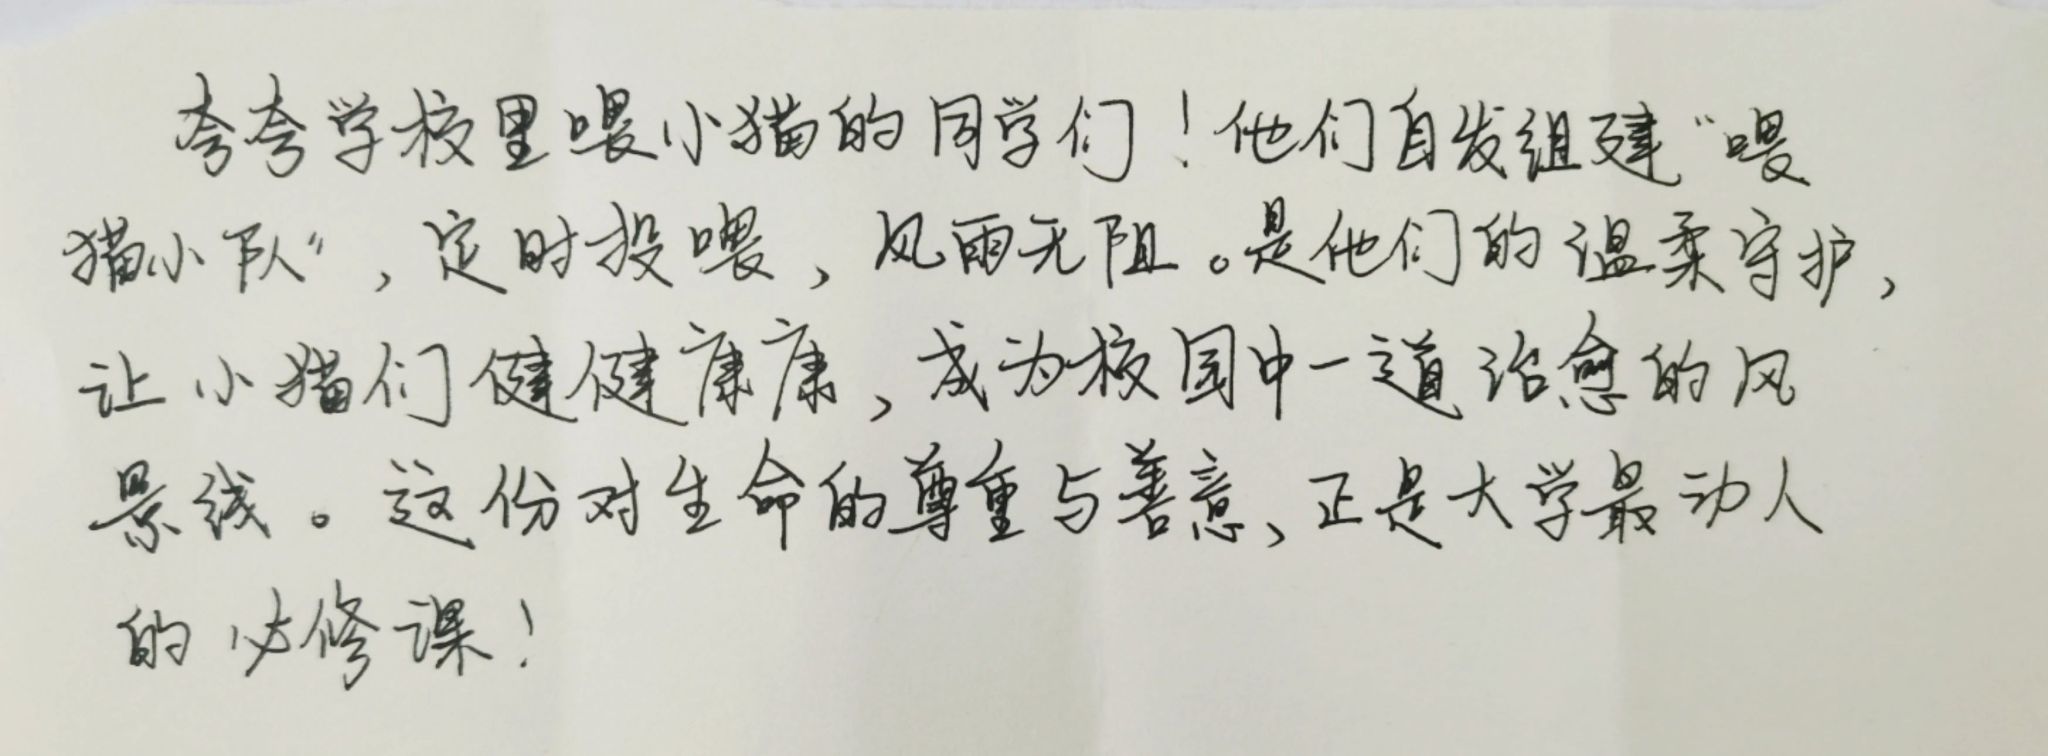 夸夸学校里喂小猫的同学们！他们自发组建“喂
猫小队”，定时投喂，风雨无阻。是他们的温柔守护，
让小猫们健健康康，成为校园中一道治愈的风
景线。这份对生命的尊重与善意、正是大学最动人
的必修课！